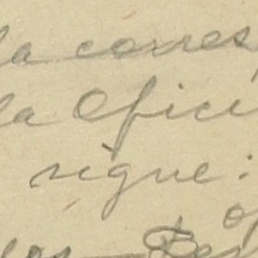 la corres
la Ofici
sigue:
los